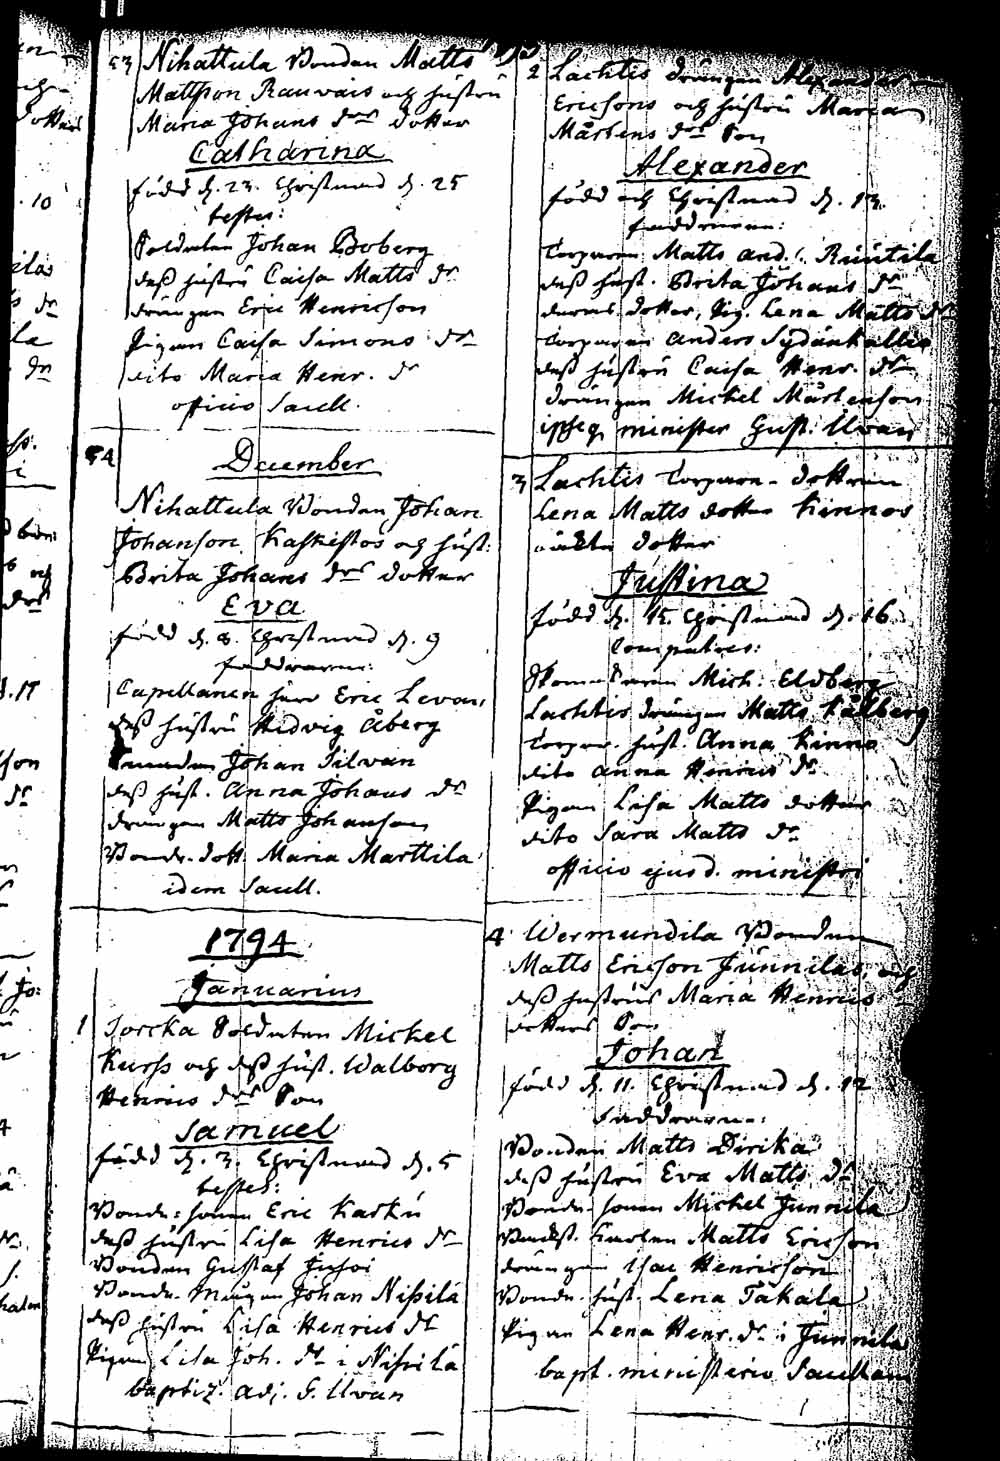 53 Nihattula Bonden Matts
Mattsson Rauvais och hustru
Maria Johans drs dotter
Catharina
född d. 23. Christnad d. 25
testes:
Soldaten Johan Boberg
dess hustru Caisa Matts dr
drängen Eric Henricson
Pigan Caisa Simons dr
dito Maria Henr. dr
officio Saell.
54
December
Nihattula Bonden Johan
Johanson Kaskistos och hust:
Brita Johans drs dotter
Eva
född d. 8. Christnad d. 9
faddrarne:
Capellanen herr Eric Levan,
dess hustru Hedvig Åberg
Johan Silvan
dess hust. Anna Johans dr
drängen Matts Johanson
Bonde. dott. Maria Marttila
idem Saell.
1794
Januarius
1 Torcka Soldaten Mickel
Kurss och dess hust. Walborg
Henrics drs Son
Samuel
född d. 3. Christnad d. 5
testes:
Bonde: sonen Eric Karku
dess hustru Lisa Henrics dr
Bonden Gustaf Juhoi
Bonde. mågen Johan Nissilä
dess hustru Lisa Henrics dr
Pigan Lisa Joh. dr i Nissilä
baptiz. adj. G. Uvan
2 Lachtis drängen Alexander
Ericsons och hustru Maria
Mårtens drs Son
Alexander
född och Christnad d. 13.
faddrarne:
Torparen Matts And. i. Ruutila
dess hust. Brita Johans dr
deras dotter, Pig. Lena Matts dr
Torparen Anders Sydänkallio
dess hustru Caisa Henr. dr
drängen Mickel Mårtenson
ipseq. minister Gust. Uvan
3 Lachtis Torpare-dottren
Lena Matts dotter Kinnos
oäkta dotter
Justina
född d. 15. Christnad d. 16
Compatres:
Skomakaren Mich. Eldberg
Lachtis drängen Matts Kålberg
Torpar. hust. Anna Kinno
dito Anna Henrics dr
Pigan Lisa Matts dotter
dito Sara Matts dr
officio ejusd. ministri
4 Wermundila Bonden
Matts Ericson Junnilas, och
dess hustrus Maria Henrics
dotters Son
Johan
född d. 11. Christnad d. 12
Faddrarne:
Bonden Matts Dirika
dess hustru Eva Matts dr
Bonde-sonen Michel Junnila
Karlen Matts Ericson
drängen Isac Henricson
Bonde. hust. Lena Takala
Pigan Lena Henr. dr i Junnila
bapt. ministerio Saellani